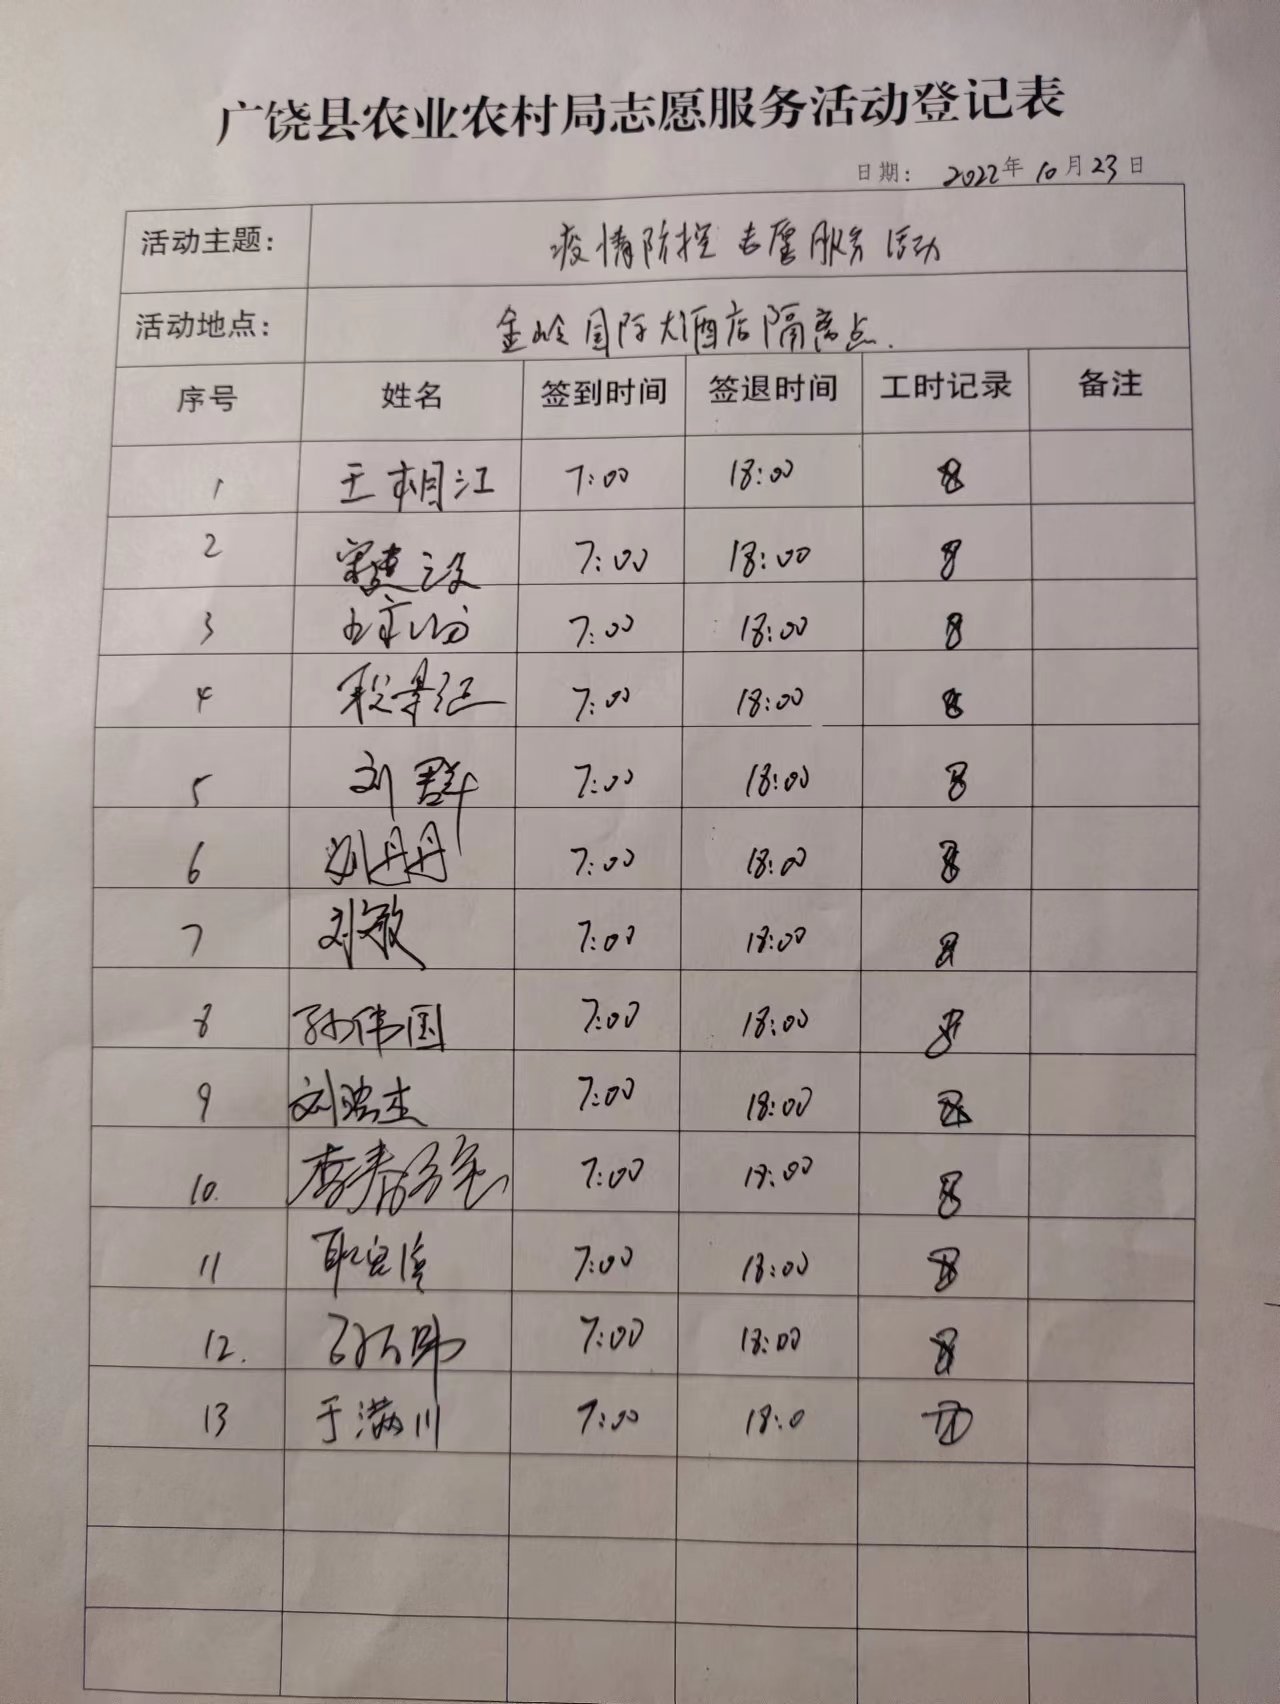 广饶县农业农村局志愿服务活动登记表
日期: 2022年10月23日
活动主题: 疫情防控志愿服务活动
活动地点: 金岭国际大酒店隔离点.
序号 姓名 签到时间 签退时间 工时记录 备注
1 王相江 7:00 18:00 8
2 宋建设 7:00 18:00 8
3 7:00 18:00 8
4 7:00 18:00 8
5 刘群 7:00 18:00 8
6 刘丹丹 7:00 18:00 8
7 刘敏 7:00 18:00 8
8 孙伟国 7:00 18:00 8
9 刘 杰 7:00 18:00 8
10. 李春 7:00 18:00 8
11 耿 7:00 18:00 8
12. 7:00 18:00 8
13 于满川 7:00 18:0